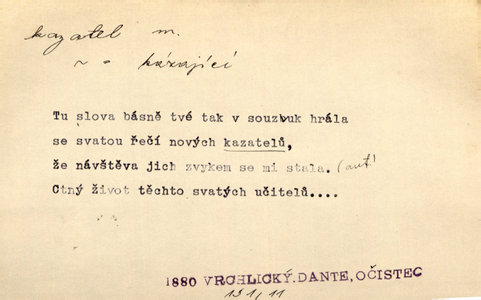 kazatel m.
~ = kázající
Tu slova básně tvé tak v souzvuk hrála
se svatou řečí nových kazatelů,
že návštěva jich zvykem se mi stala. (aut!
Ctný život těchto svatých učitelů....
1880 VRCHLICKÝ. DANTE, OČISTEC
131, 11